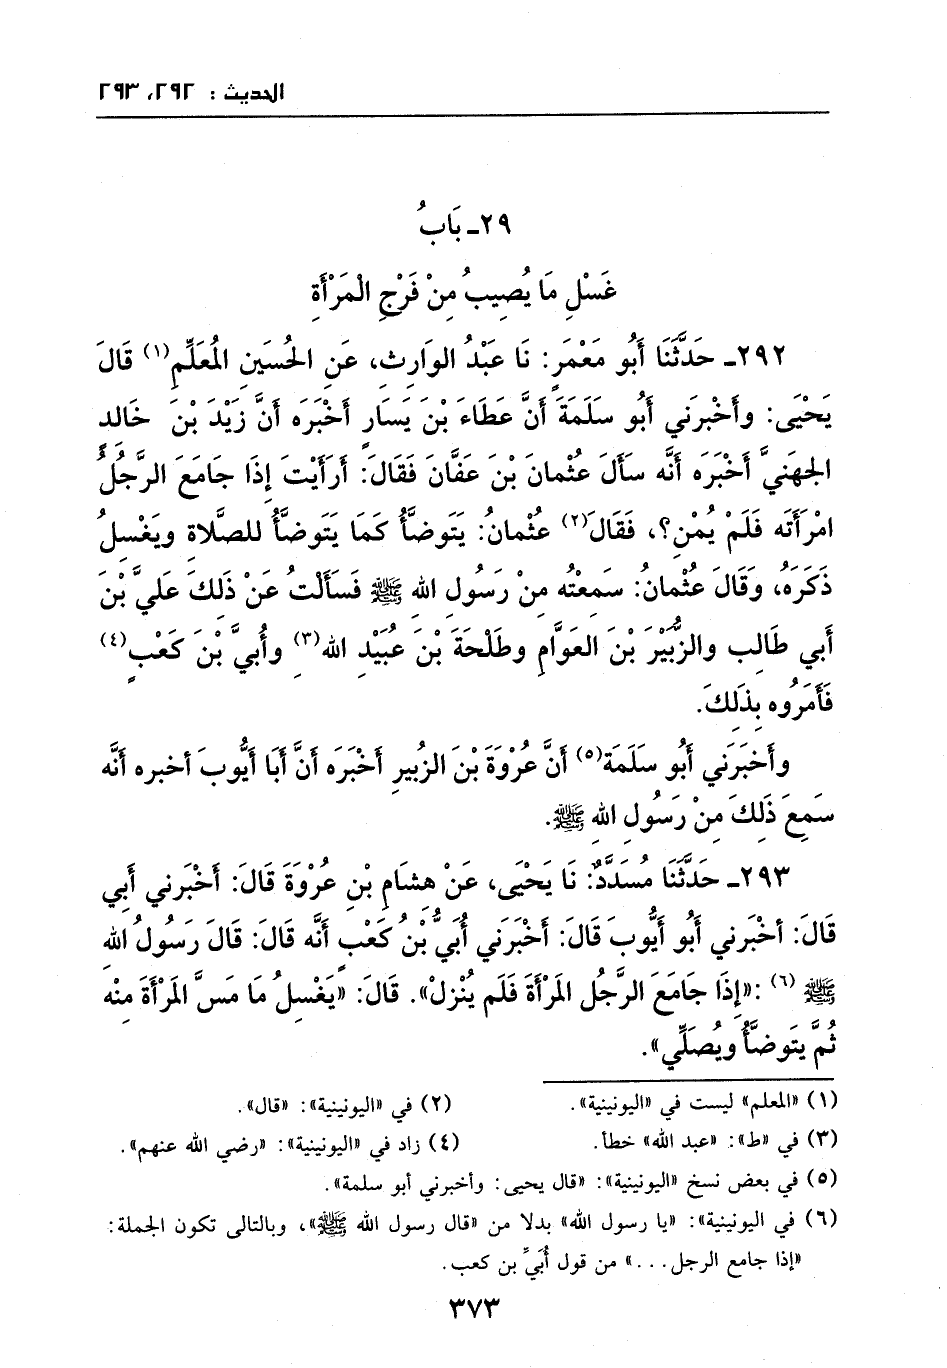 الحديث : ٢٩٢، ٢٩٣
٢٩ـ بَابُ
غَسْلِ مَا يُصِيبُ مِنْ فَرْجِ الْمَرْأَةِ
٢٩٢ـ حَدَّثَنَا أَبُو مَعْمَرٍ: نَا عَبْدُ الوَارِثِ، عَنِ الحُسَينِ المُعَلِّمِ(١) قَالَ
يَحْيَى: وأَخْبرَنِي أَبُو سَلَمَةَ أَنَّ عَطَاءَ بْنَ يَسَارٍ أَخْبَرَه أَنَّ زَيْدَ بْنَ خَالدٍ
الجهَنيَّ أَخْبَرَه أَنَّه سَأَلَ عُثْمانَ بْنَ عَفَّانَ فَقَالَ: أَرَأَيْتَ إِذَا جَامَعَ الرَّجُلُ
امْرَأَتَه فَلَمْ يُمْنِ؟، فَقَالَ(٢) عُثْمانُ: يَتَوضَّأُ كَمَا يَتَوضَّأُ للصَّلاةِ ويَغْسِلُ
ذَكَرَهُ، وَقَالَ عُثْمانُ: سَمِعْتُه مِنْ رَسُولِ اللهِ ﷺ فَسأَلْتُ عَنْ ذَلكَ عَليَّ بْنَ
أَبي طَالِبٍ والزُّبَيْرَ بْنَ العَوَّامِ وطَلْحَةَ بْنَ عبَيْدِ اللهِ(٣) وأُبيَّ بْنَ كَعْبٍ(٤)
فَأَمَرُوه بِذَلِكَ.
وأَخبَرَنِي أَبُو سَلَمَةَ(٥) أَنَّ عُرْوَةَ بْنَ الزُّبيرِ أَخْبَرَه أَنَّ أَبَا أَيُّوبَ أخبره أنَّه
سَمِعَ ذَلِكَ مِنْ رَسُولِ اللهِ ﷺ.
٢٩٣ـ حَدَّثَنَا مُسَدَّدٌ: نَا يَحْيَى، عَنْ هِشَامِ بْنِ عُرْوَةَ قَالَ: أَخْبَرني أَبي
قَالَ: أخْبَرني أَبُو أَيُّوبَ قَالَ: أَخْبَرَنِي أُبَيُّ بْنُ كَعْبٍ أنَّه قَالَ: قَالَ رَسُولُ اللهِ
ﷺ(٦) :«إِذَا جَامَعَ الرَّجُل المَرْأَةَ فَلَم يُنْزِلْ». قَالَ: «يَغْسلُ مَا مَسَّ المَرْأَةَ مِنْه
ثُمَّ يَتَوضَّأُ ويُصَلِّي».
(١) «المعلم» ليست في «اليونينية». (٢) في «اليونينية»: «قال».
(٣) في «ط»: «عبد الله» خطأ. (٤) زاد في «اليونينية»: «رضي الله عنهم».
(٥) في بعض نسخ «اليونينية»: «قال يحيى: وأخبرني أبو سلمة».
(٦) في اليونينية»: «يا رسول الله» بدلا من «قال رسول الله ﷺ»، وبالتالى تكون الجملة:
«إذا جامع الرجل...» من قول أُبَيِّ بن كعب.
٣٧٣